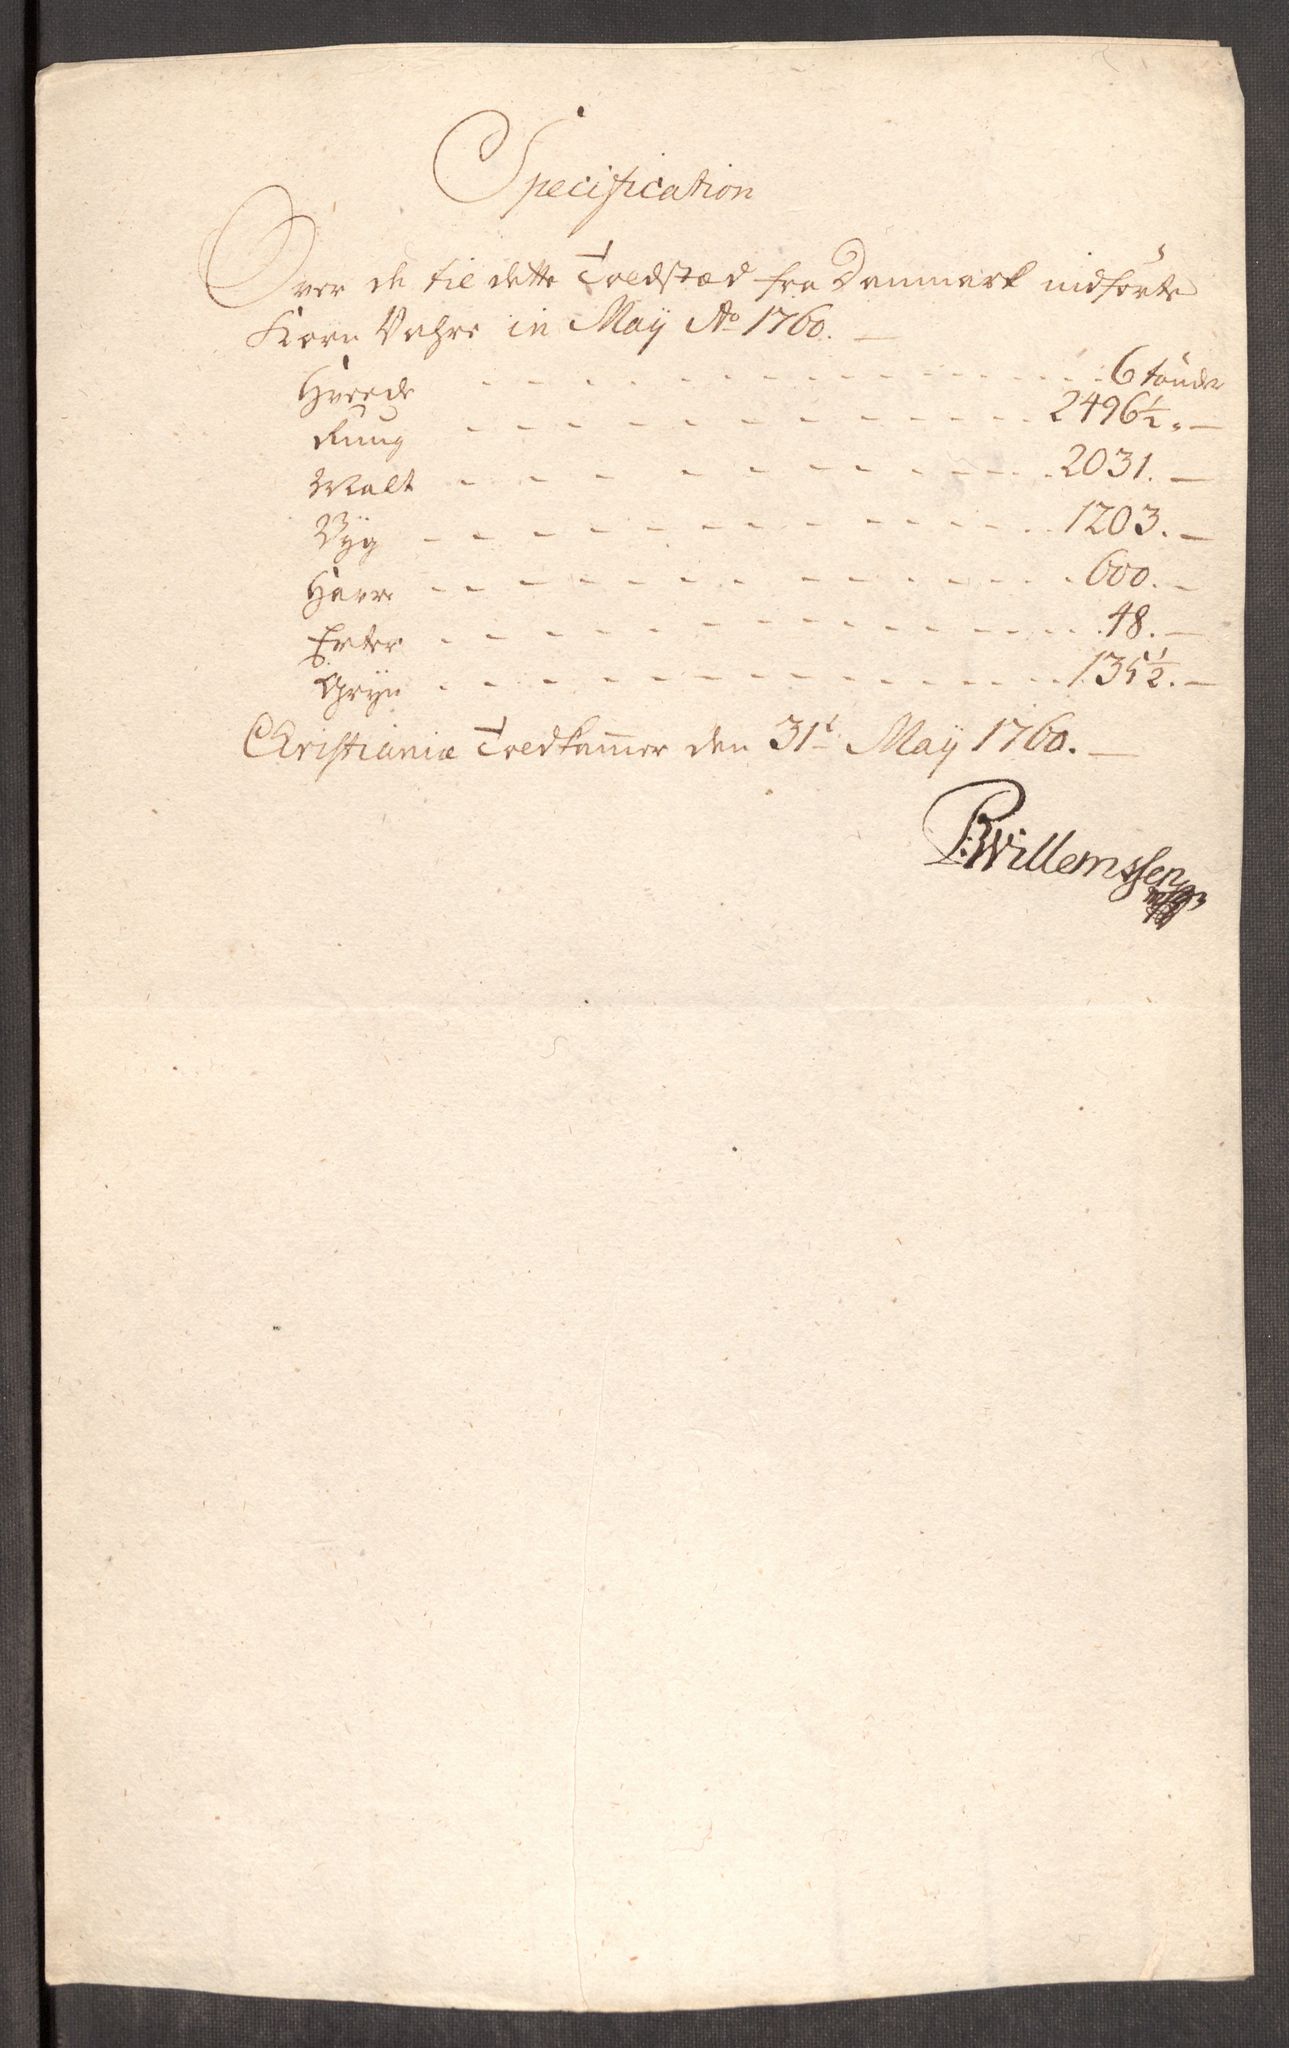 Specification
Over de til dette Toldstæd fra Danmark indförte
Korn Vahre in Maÿ Ao 1760. —
Hvede - - - 6 tönder
Rung - - - 2496 1/2. —
Malt - - - 2031. —
Byg - - - 1203. —
Havre - - - 600. —
Erter - - - 48. —
Gryn - - - 135 1/2. —
Christiania Toldkammer den 31t Maÿ 1760. —
P: Willemssen